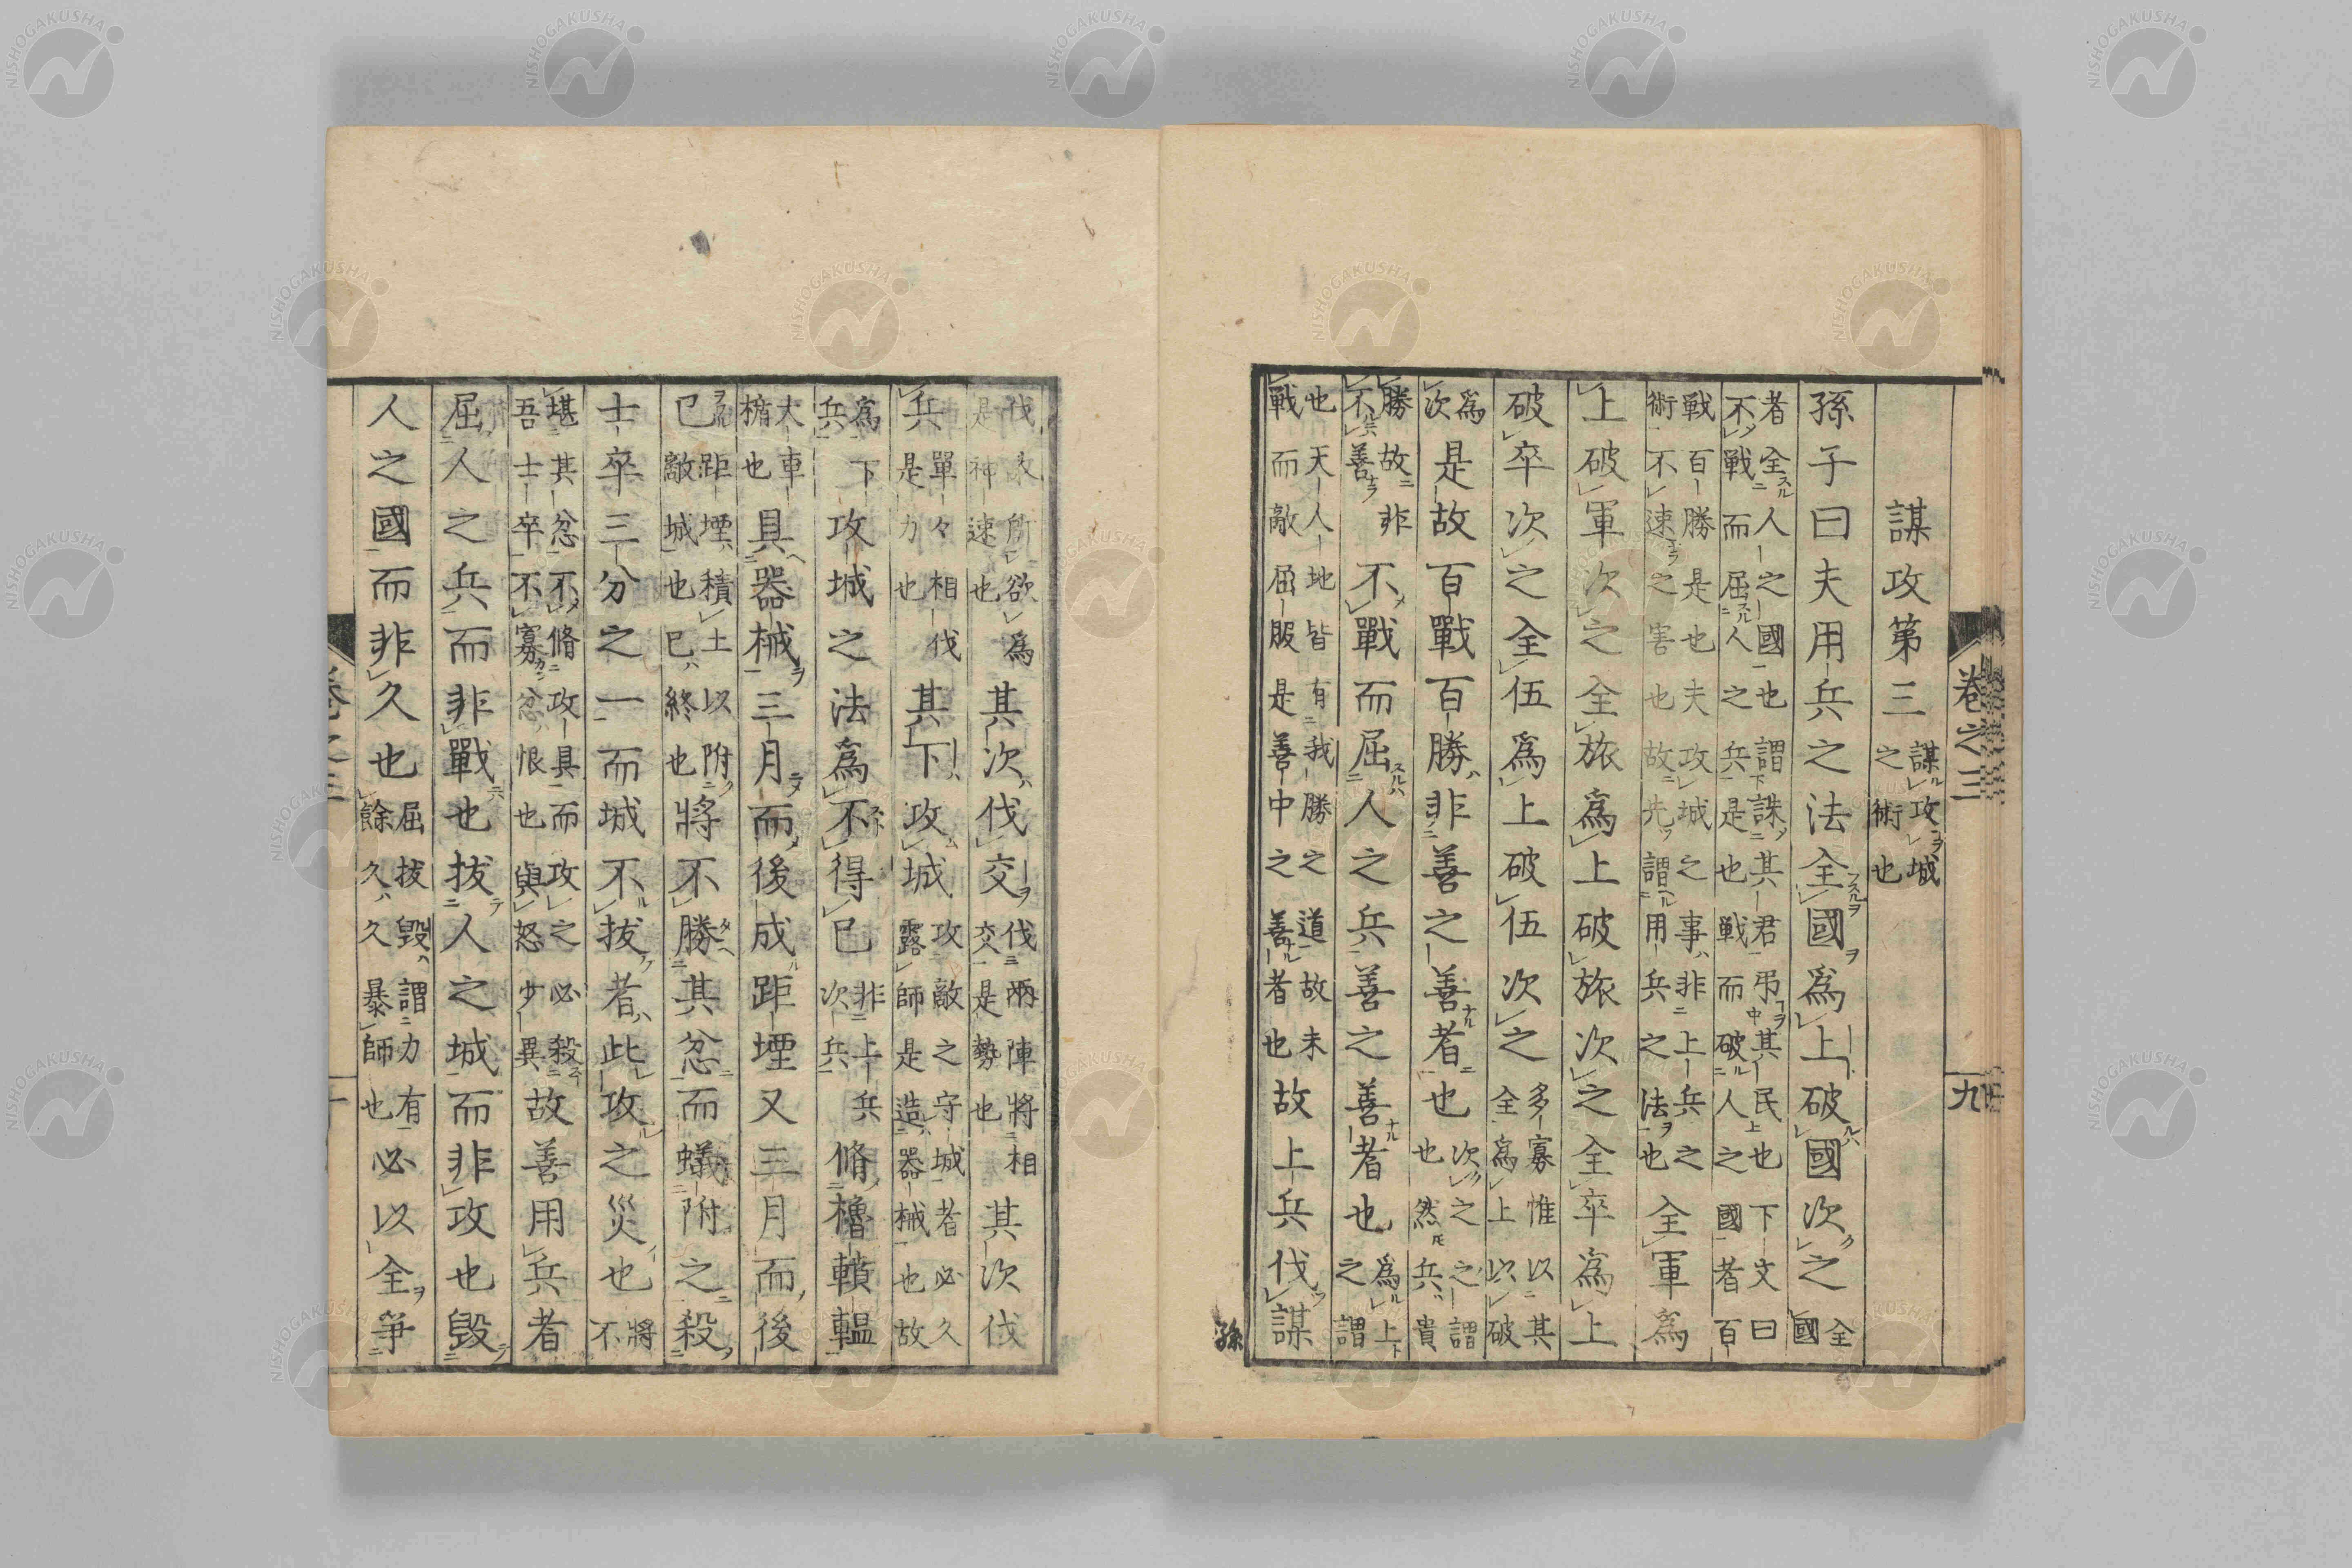 卷之三 九
謀攻第三 謀攻城之術也
孫子曰夫用兵之法全國爲上破國次之 全國
者全人之國也謂誅其君弔其民也下文曰
不戰而屈人之兵是也戰而破人之國者百
戰百勝是也夫攻城之事非上兵之術不速之害也故先謂用兵之法也 全軍爲
上破軍次之全旅爲上破旅次之全卒爲上
破卒次之全伍爲上破伍次之 多寡惟以其全爲上以破
爲次 是故百戰百勝非善之善者也 次之之謂也然兵貴
勝故非不善 不戰而屈人之兵善之善者也 爲上之謂
也天人地皆有我勝之道故未戰而敵屈服是善中之善者也 故上兵伐謀
孫
伐 所欲爲是神速也 其次伐交 伐兩陣將相交是勢也 其次伐
兵 單々相伐是力也 其下攻城 攻敵之守城者必久露師是造器械也故
爲下兵 攻城之法爲不得已 非上兵次兵 脩櫓轒轀
大車櫓也 具器械三月而後成距堙又三月而後
已 距堙積土以附敵城也已終也 將不勝其忿而蟻附之殺
士卒三分之一而城不拔者此攻之災也 將不
堪其忿不脩攻具而攻之必殺吾士卒不寡忿恨也與怒少異 故善用兵者
屈人之兵而非戰也拔人之城而非攻也毀
人之國而非久也 屈拔毀謂力有餘久久暴師也 必以全爭
卷之三
NISHOGAKUSHA